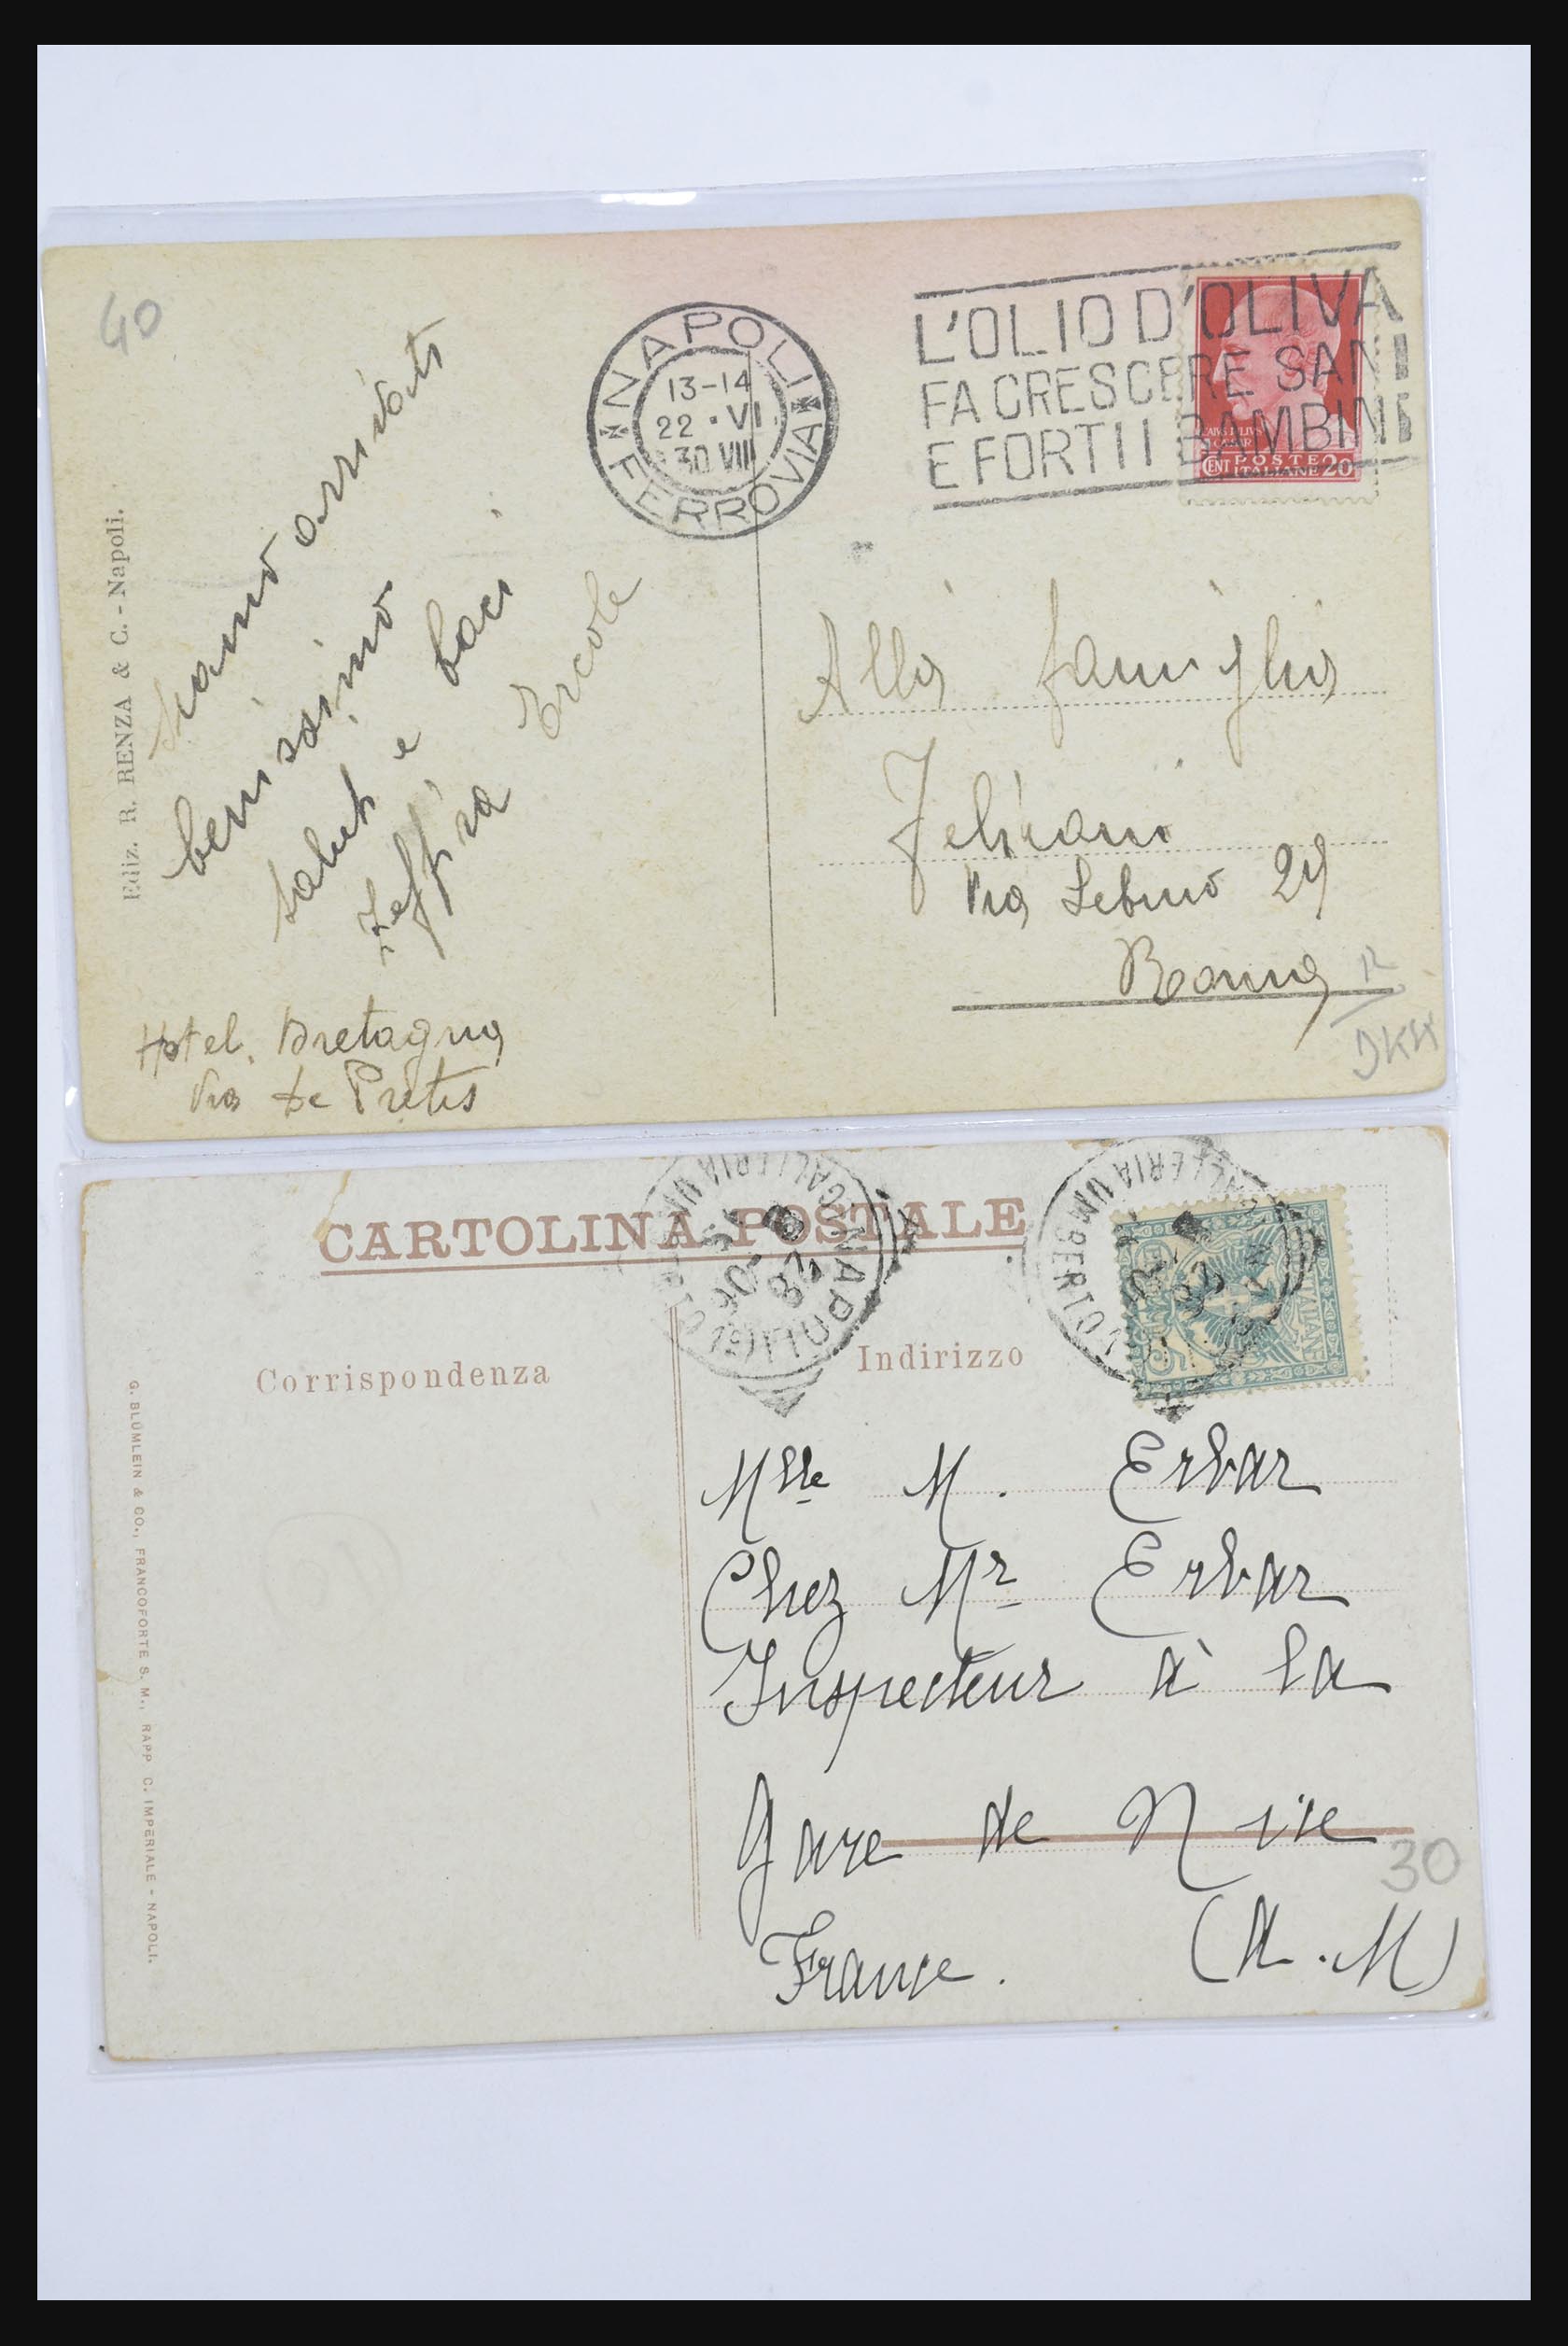 40
NAPOLI
13-14
22 · VI
30 VIII
FERROVIA
L'OLIO D'OLIVA
FA CRESCERE SANI
E FORTI I BAMBINI
CENT POSTE
ITALIANE 20
Ediz. R. RENZA & C. - Napoli.
Siamo arrivati
benissimo
saluti e baci
Zeffira Ercole
Hotel. Bretagna
Via De Pretis
Alla famiglia
Feliciani
Via Sebino 29
Roma
CARTOLINA POSTALE
NAPOLI
GALLERIA UMBERTO I
28
06
GALLERIA UMBERTO I
Corrispondenza
Indirizzo
G. BLÜMLEIN & CO., FRANCOFORTE S. M., RAPP C. IMPERIALE - NAPOLI.
Mlle M. Erbar
Chez Mr Erbar
Inspecteur à la
Gare de Nice
30
France. (A.M)